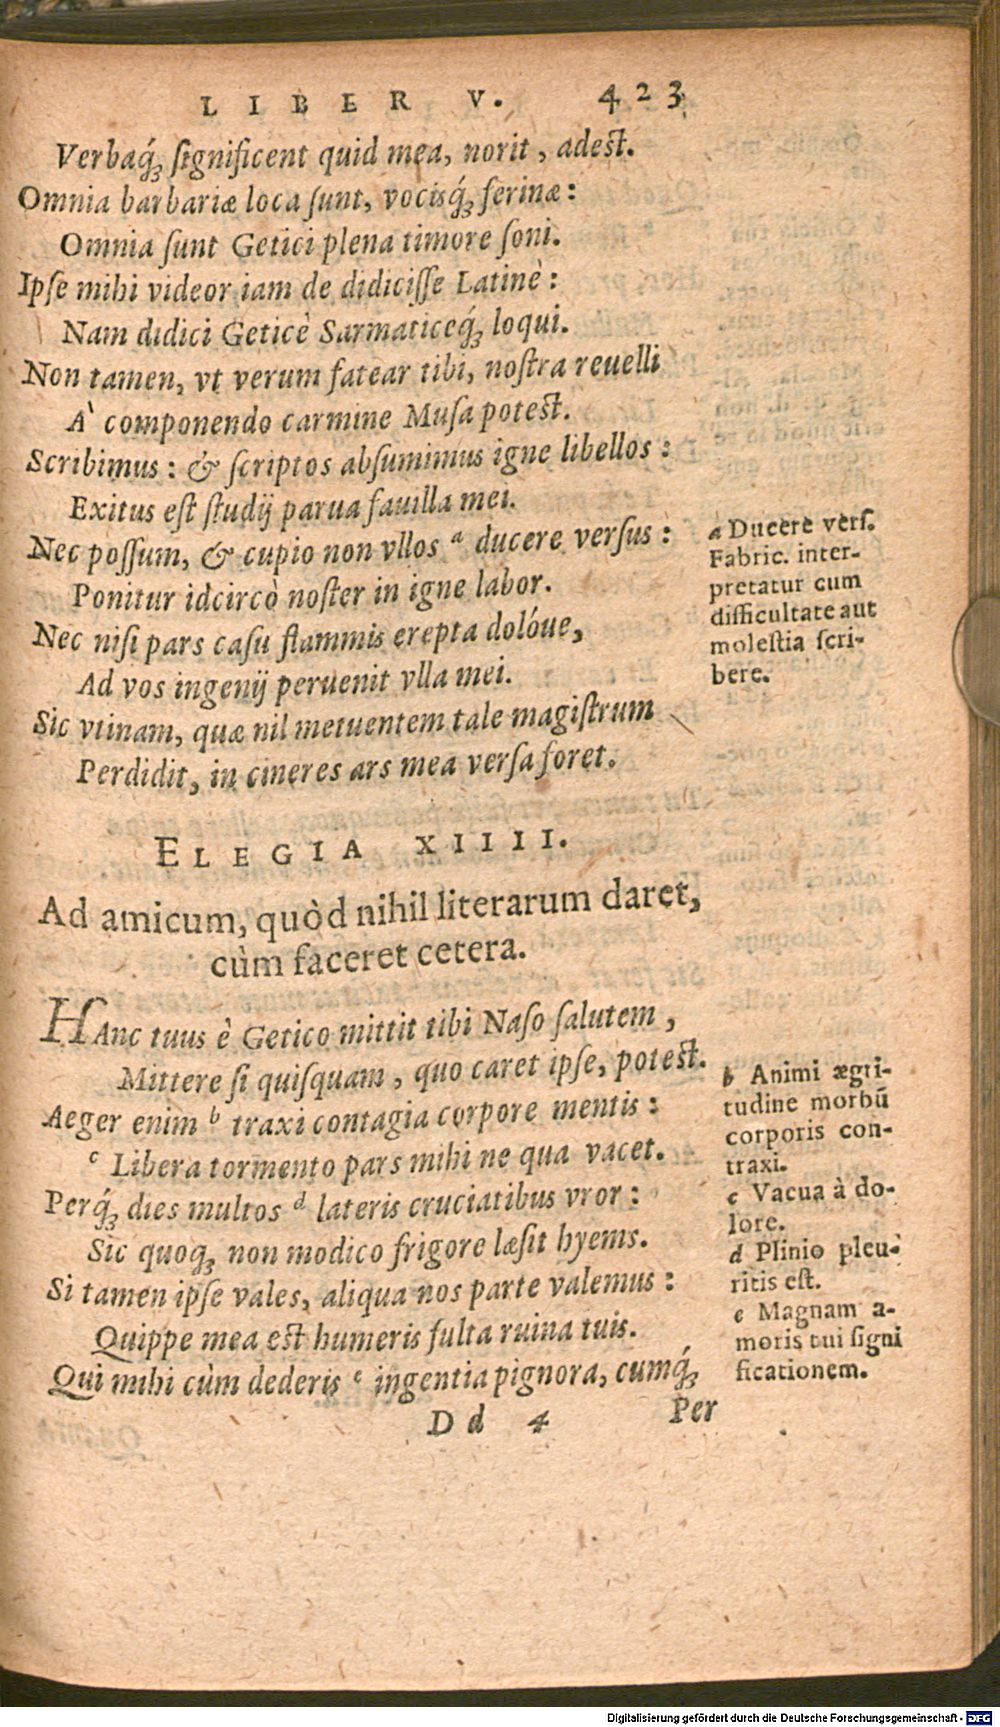 LIBER V. 423
Verbaq́; ſignificent quid mea, norit, adest.
Omnia barbariæ loca ſunt, vocisq́; ferinæ:
Omnia ſunt Getici plena timore ſoni.
Ipſe mihi videor iam de didiciſſe Latinè:
Nam didici Geticè Sarmaticeq́; loqui.
Non tamen, vt verum fatear tibi, noſtra reuelli
A' componendo carmine Muſa potest.
Scribimus: & ſcriptos abſumimus igne libellos:
Exitus eſt ſtudij parua fauilla mei.
Nec poſſum, & cupio non vllos a ducere verſus:
Ponitur idcircò noſter in igne labor.
Nec niſi pars caſu flammis erepta dolóue,
Ad vos ingenij peruenit vlla mei.
Sic vtinam, quæ nil metuentem tale magiſtrum
Perdidit, in cineres ars mea verſa foret.
a Ducere verſ.
Fabric. inter-
pretatur cum
difficultate aut
moleſtia ſcri-
bere.
ELEGIA XIIII.
Ad amicum, quòd nihil literarum daret,
cùm faceret cetera.
HAnc tuus è Getico mittit tibi Naſo ſalutem,
Mittere ſi quiſquam, quo caret ipſe, potest.
Aeger enim b traxi contagia corpore mentis:
c Libera tormento pars mihi ne qua vacet.
Perq́; dies multos d lateris cruciatibus vror:
Sic quoq; non modico frigore læſit hyems.
Si tamen ipſe vales, aliqua nos parte valemus:
Quippe mea est humeris fulta ruina tuis.
Qui mihi cùm dederis e ingentia pignora, cumq́;
b Animi ægri-
tudine morbū
corporis con-
traxi.
c Vacua à do-
lore.
d Plinio pleu-
ritis eſt.
e Magnam a-
moris tui ſigni
ficationem.
Dd 4 Per
Digitalisierung gefördert durch die Deutsche Forschungsgemeinschaft - DFG